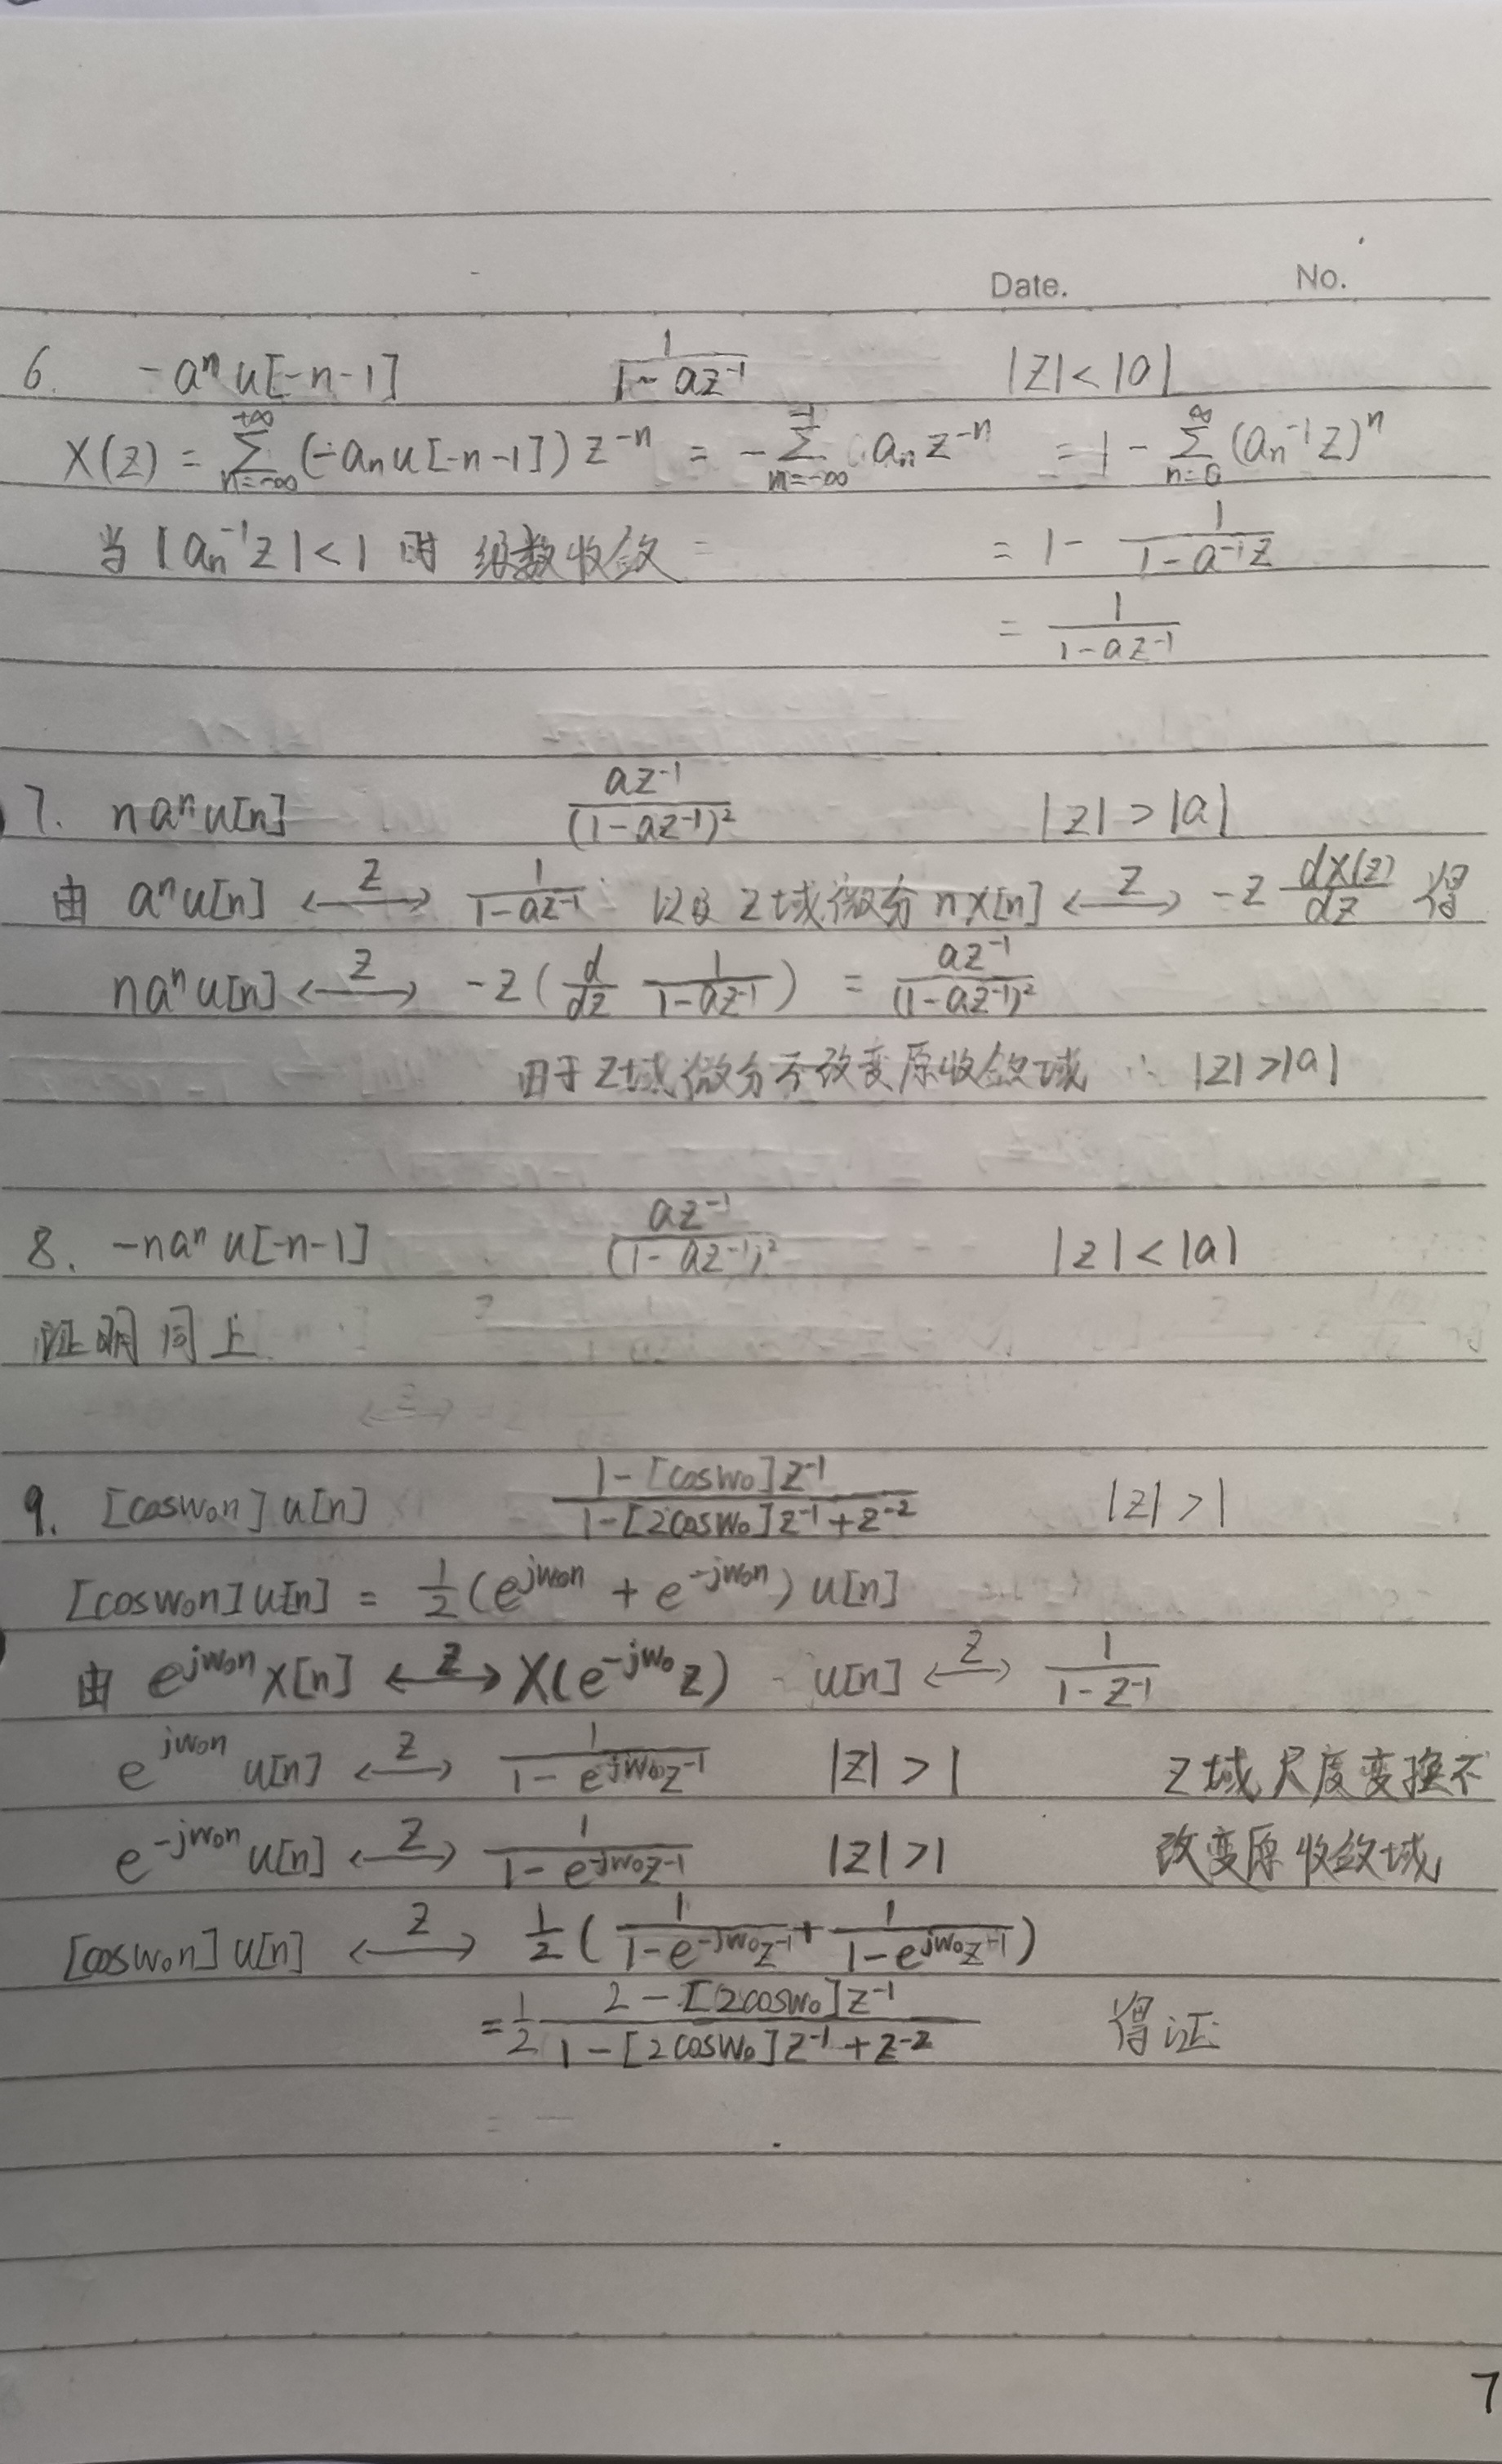 Date. No.
6. -aⁿ u[-n-1] 1/(1-az⁻¹) |z|<|a|
X(z) = Σ_{n=-∞}^{+∞} (-aₙ u[-n-1]) z⁻ⁿ = -Σ_{n=-∞}^{-1} aₙ z⁻ⁿ = 1 - Σ_{n=0}^{∞} (aₙ⁻¹z)ⁿ
当 |aₙ⁻¹z|<1 时 级数收敛 = 1 - 1/(1-a⁻¹z)
= 1/(1-az⁻¹)
7. naⁿu[n] az⁻¹/(1-az⁻¹)² |z|>|a|
由 aⁿu[n] ⟷^Z 1/(1-az⁻¹) 以及 Z域微分 nx[n] ⟷^Z -z dX(z)/dz 得
naⁿu[n] ⟷^Z -z(d/dz 1/(1-az⁻¹)) = az⁻¹/(1-az⁻¹)²
由于Z域微分不改变原收敛域 ∴ |z|>|a|
8. -naⁿ u[-n-1] az⁻¹/(1-az⁻¹)² |z|<|a|
证明同上
9. [cosw₀n]u[n] (1-[cosw₀]z⁻¹)/(1-[2cosw₀]z⁻¹+z⁻²) |z|>1
[cosw₀n]u[n] = 1/2(e^{jw₀n} + e^{-jw₀n})u[n]
由 e^{jw₀n}x[n] ⟷^Z X(e^{-jw₀}z) u[n] ⟷^Z 1/(1-z⁻¹)
e^{jw₀n}u[n] ⟷^Z 1/(1-e^{jw₀}z⁻¹) |z|>1 Z域尺度变换不
e^{-jw₀n}u[n] ⟷^Z 1/(1-e^{-jw₀}z⁻¹) |z|>1 改变原收敛域
[cosw₀n]u[n] ⟷^Z 1/2(1/(1-e^{-jw₀}z⁻¹)+1/(1-e^{jw₀}z⁻¹))
=1/2 (2-[2cosw₀]z⁻¹)/(1-[2cosw₀]z⁻¹+z⁻²) 得证
7